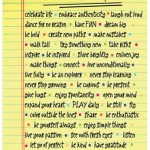 celebrate life • embrace authenticity • laugh out loud
dance for no reason • have FUN • dream big
be bold • create new paths • make mistakes
walk tall • try something new • take risks
inspire • be inspired • think happily • explore
make things • connect • live unconditionally
live fully • be an explorer • never stop learning
never stop growing • be content • be passionate
give hugs • enjoy spontaneity • open your mind
expand your heart • PLAY daily • be still • sip
color outside the lines • share • be enthusiastic
be grateful always • enjoy simple things
live your passion • be
let go of perfect • be kind • have gratitude